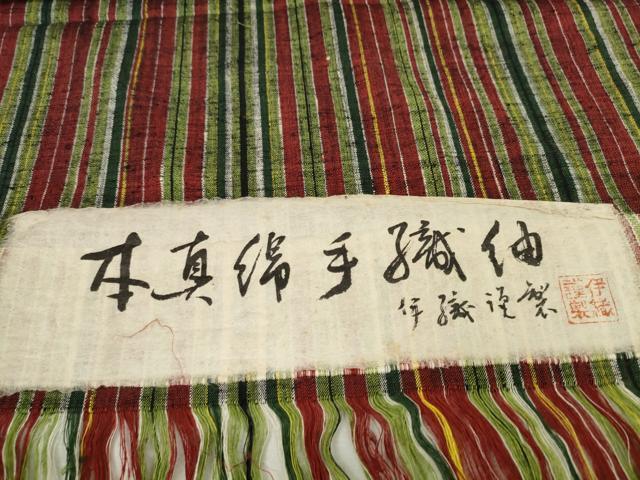 本真綿手織紬
伊織謹製
伊織
謹製